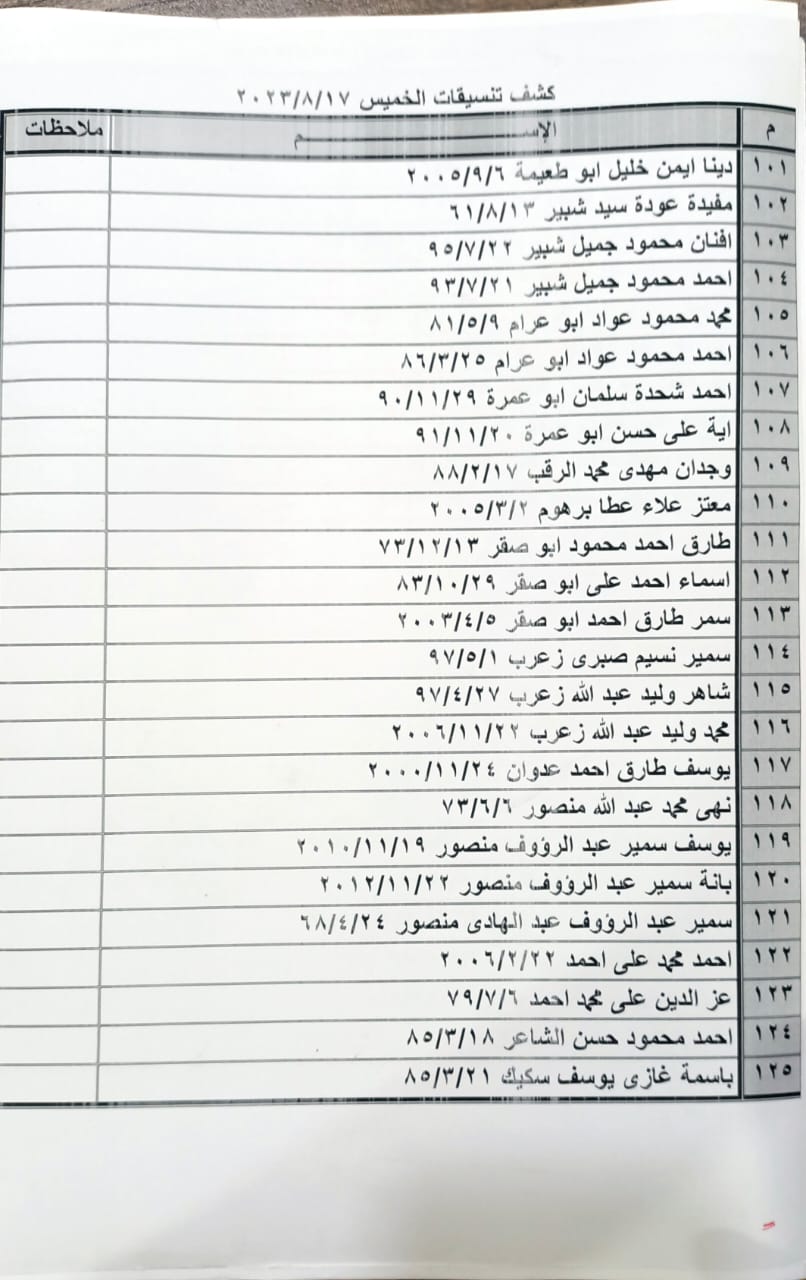 كشف تنسيقات الخميس ٢٠٢٣/٨/١٧
م الإســـــــــم ملاحظات
١٠١ دينا ايمن خليل ابو طعيمة ٢٠٠٥/٩/٦
١٠٢ مفيدة عودة سيد شبير ٦١/٨/١٣
١٠٣ افنان محمود جميل شبير ٩٥/٧/٢٢
١٠٤ احمد محمود جميل شبير ٩٣/٧/٢١
١٠٥ محمد محمود عواد ابو عرام ٨١/٥/٩
١٠٦ احمد محمود عواد ابو عرام ٨٦/٣/٢٥
١٠٧ احمد شحدة سلمان ابو عمرة ٩٠/١١/٢٩
١٠٨ اية على حسن ابو عمرة ٩١/١١/٢٠
١٠٩ وجدان مهدى محمد الرقب ٨٨/٢/١٧
١١٠ معتز علاء عطا برهوم ٢٠٠٥/٣/٢
١١١ طارق احمد محمود ابو صقر ٧٣/١٢/١٣
١١٢ اسماء احمد على ابو صقر ٨٣/١٠/٢٩
١١٣ سمر طارق احمد ابو صقر ٢٠٠٣/٤/٥
١١٤ سمير نسيم صبرى زعرب ٩٧/٥/١
١١٥ شاهر وليد عبد الله زعرب ٩٧/٤/٢٧
١١٦ محمد وليد عبد الله زعرب ٢٠٠٦/١١/٢٢
١١٧ يوسف طارق احمد عدوان ٢٠٠٠/١١/٢٤
١١٨ نهى محمد عبد الله منصور ٧٣/٦/٦
١١٩ يوسف سمير عبد الرؤوف منصور ٢٠١٠/١١/١٩
١٢٠ بانة سمير عبد الرؤوف منصور ٢٠١٢/١١/٢٢
١٢١ سمير عبد الرؤوف عبد الهادى منصور ٦٨/٤/٢٤
١٢٢ احمد محمد على احمد ٢٠٠٦/٢/٢٢
١٢٣ عز الدين على محمد احمد ٧٩/٧/٦
١٢٤ احمد محمود حسن الشاعر ٨٥/٣/١٨
١٢٥ باسمة غازى يوسف سكيك ٨٥/٣/٢١